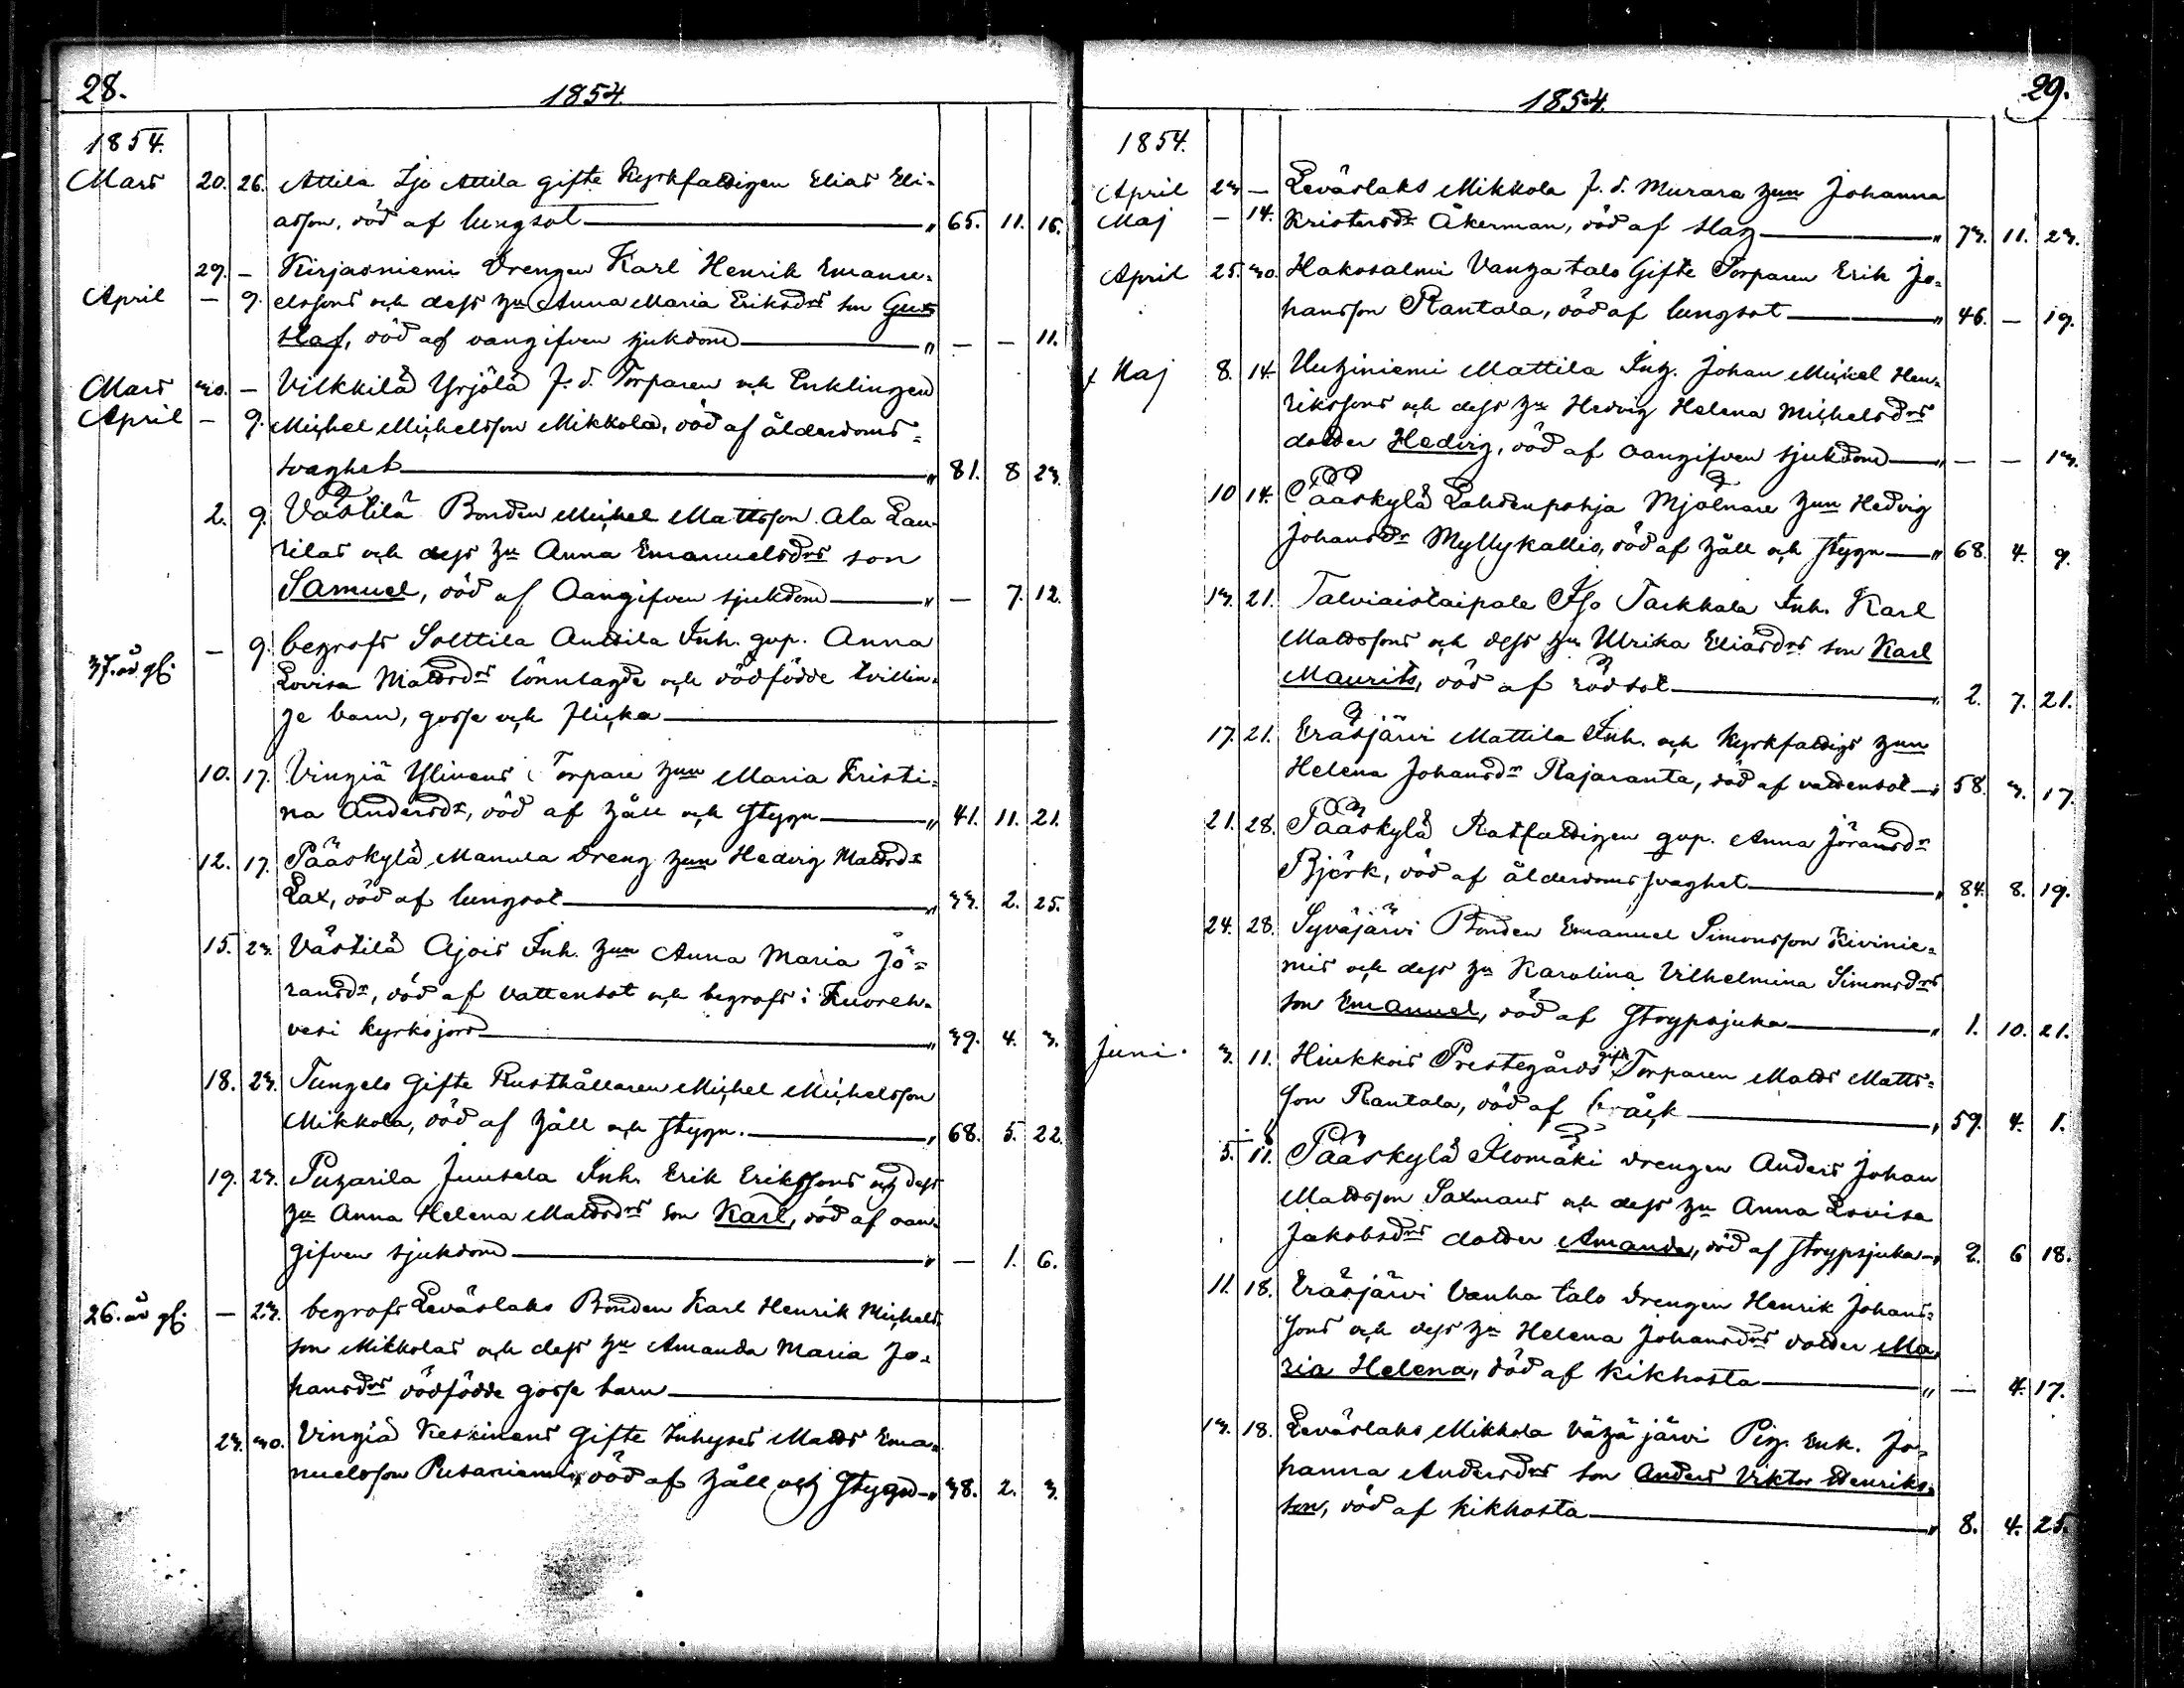 28.
1854.
1854.
Mars 20. 26. Attila Ijo Attila gifte Kyrkfattigen Elias Eli-
asson, död af lungsot " 65. 11. 16.
29. – Kirjasniemi Drengen Karl Henrik Emanu-
April – 9. elssons och dess hu Anna Maria Eriksdrs son Gus
staf, död af oangifven sjukdom " – – 11.
Mars 30. – Vilkkilä Yrjölä f. d. Torparen och Enklingen
April – 9. Michel Michelsson Mikkola, död af ålderdoms-
svaghet " 81. 8 23.
2. 9. Västilä Bonden Michel Mattsson Ala Lau-
rilas och dess hu Anna Emanuelsdrs son
Samuel, död af Oangifven sjukdom " – 7. 12.
– 9. begrofs Solttila Anttila Inh. gvp. Anna
37. år gl. Lovisa Mattsdrs lönnlagde och dödfödde tvillin-
ge barn, gosse och flicka
10. 17. Vinhiä Ylinens Torpare hun Maria Kristi-
na Andersdr, död af håll och styng " 41. 11. 21.
12. 17. Pääskylä Manula dreng hun Hedvig Mattsdr
Lax, död af lungsot " 33. 2. 25.
15. 23. Västilä Ajois Inh. hun Anna Maria Jö-
ransdr, död af vattensot och begrofs i Kuoreh-
vesi kyrkojord " 39. 4. 3.
18. 23. Tunzelo Gifte Rusthållaren Michel Michelsson
Mikkola, död af håll och styng. " 68. 5. 22.
19. 23. Puharila Juusela Inh. Erik Erikssons och dess
hu Anna Helena Mattsdrs son Karl, död af oan-
gifven sjukdom " – 1. 6.
26. år gl. – 23. begrofs Leväslaks Bonden Karl Henrik Michels
son Mikkolas och dess hu Amanda Maria Jo-
hansdrs dödfödde gosse barn
23. 30. Vinhiä Keskinens Gifte Inhyses Matts Ema-
nuelsson Putaniemi, död af håll och styng " 38. 2. 3.
29.
1854.
1854.
April 23 – Leväslaks Mikkola f. d. Murare hun Johanna
Maj – 14. Kristersdr Åkerman, död af slag " 73. 11. 23.
April 25. 30. Hakosalmi Vanha talo Gifte Torparen Erik Jo-
hansson Rantala, död af lungsot " 46. – 19.
Maj 8. 14. Uuhiniemi Mattila Inh. Johan Michel Hen-
rikssons och dess hu Hedvig Helena Michelsdrs
dotter Hedvig, död af oangifven sjukdom " – – 13.
10 14. Pääskylä Lahdenpohja Mjölnare hun Hedvig
Johansdr Myllykallio, död af håll och styng " 68. 4. 9.
13. 21. Talviaistaipale Iso Tarkkala Inh. Karl
Mattssons och dess hu Ulrika Eliasdrs son Karl
Maurits, död af rödsot " 2. 7. 21.
17. 21. Eräsjärvi Mattila Inh. och Kyrkfattigs hun
Helena Johansdr Rajaranta, död af vattensot " 58. 3. 17.
21. 28. Pääskylä Ratfattigen gvp. Anna Jöransdr
Björk, död af ålderdomssvaghet " 84. 8. 19.
24. 28. Syväjärvi Bonden Emanuel Simonsson Kivinie-
mis och dess hu Karolina Vilhelmina Simonsdrs
son Emanuel, död af Strypsjuka " 1. 10. 21.
Juni. 3. 11. Hiukkois Prestegårds gifte Torparen Matts Matts-
son Rantala, död af bråck " 59. 4. 1.
5. 11. Pääskylä Ilomäki drengen Anders Johan
Mattsson Saxmans och dess hu Anna Lovisa
Jakobsdrs dotter Amanda, död af strypsjuka " 2. 6 18.
11. 18. Eräsjärvi Vanha talo drengen Henrik Johans-
sons och dess hu Helena Johansdrs dotter Ma-
ria Helena, död af kikhosta " – 4. 17.
13. 18. Leväslaks Mikkola Vähä järvi Pig. Enk. Jo-
hanna Andersdrs son Anders Viktor Henriks-
son, död af kikhosta " 8. 4. 25.